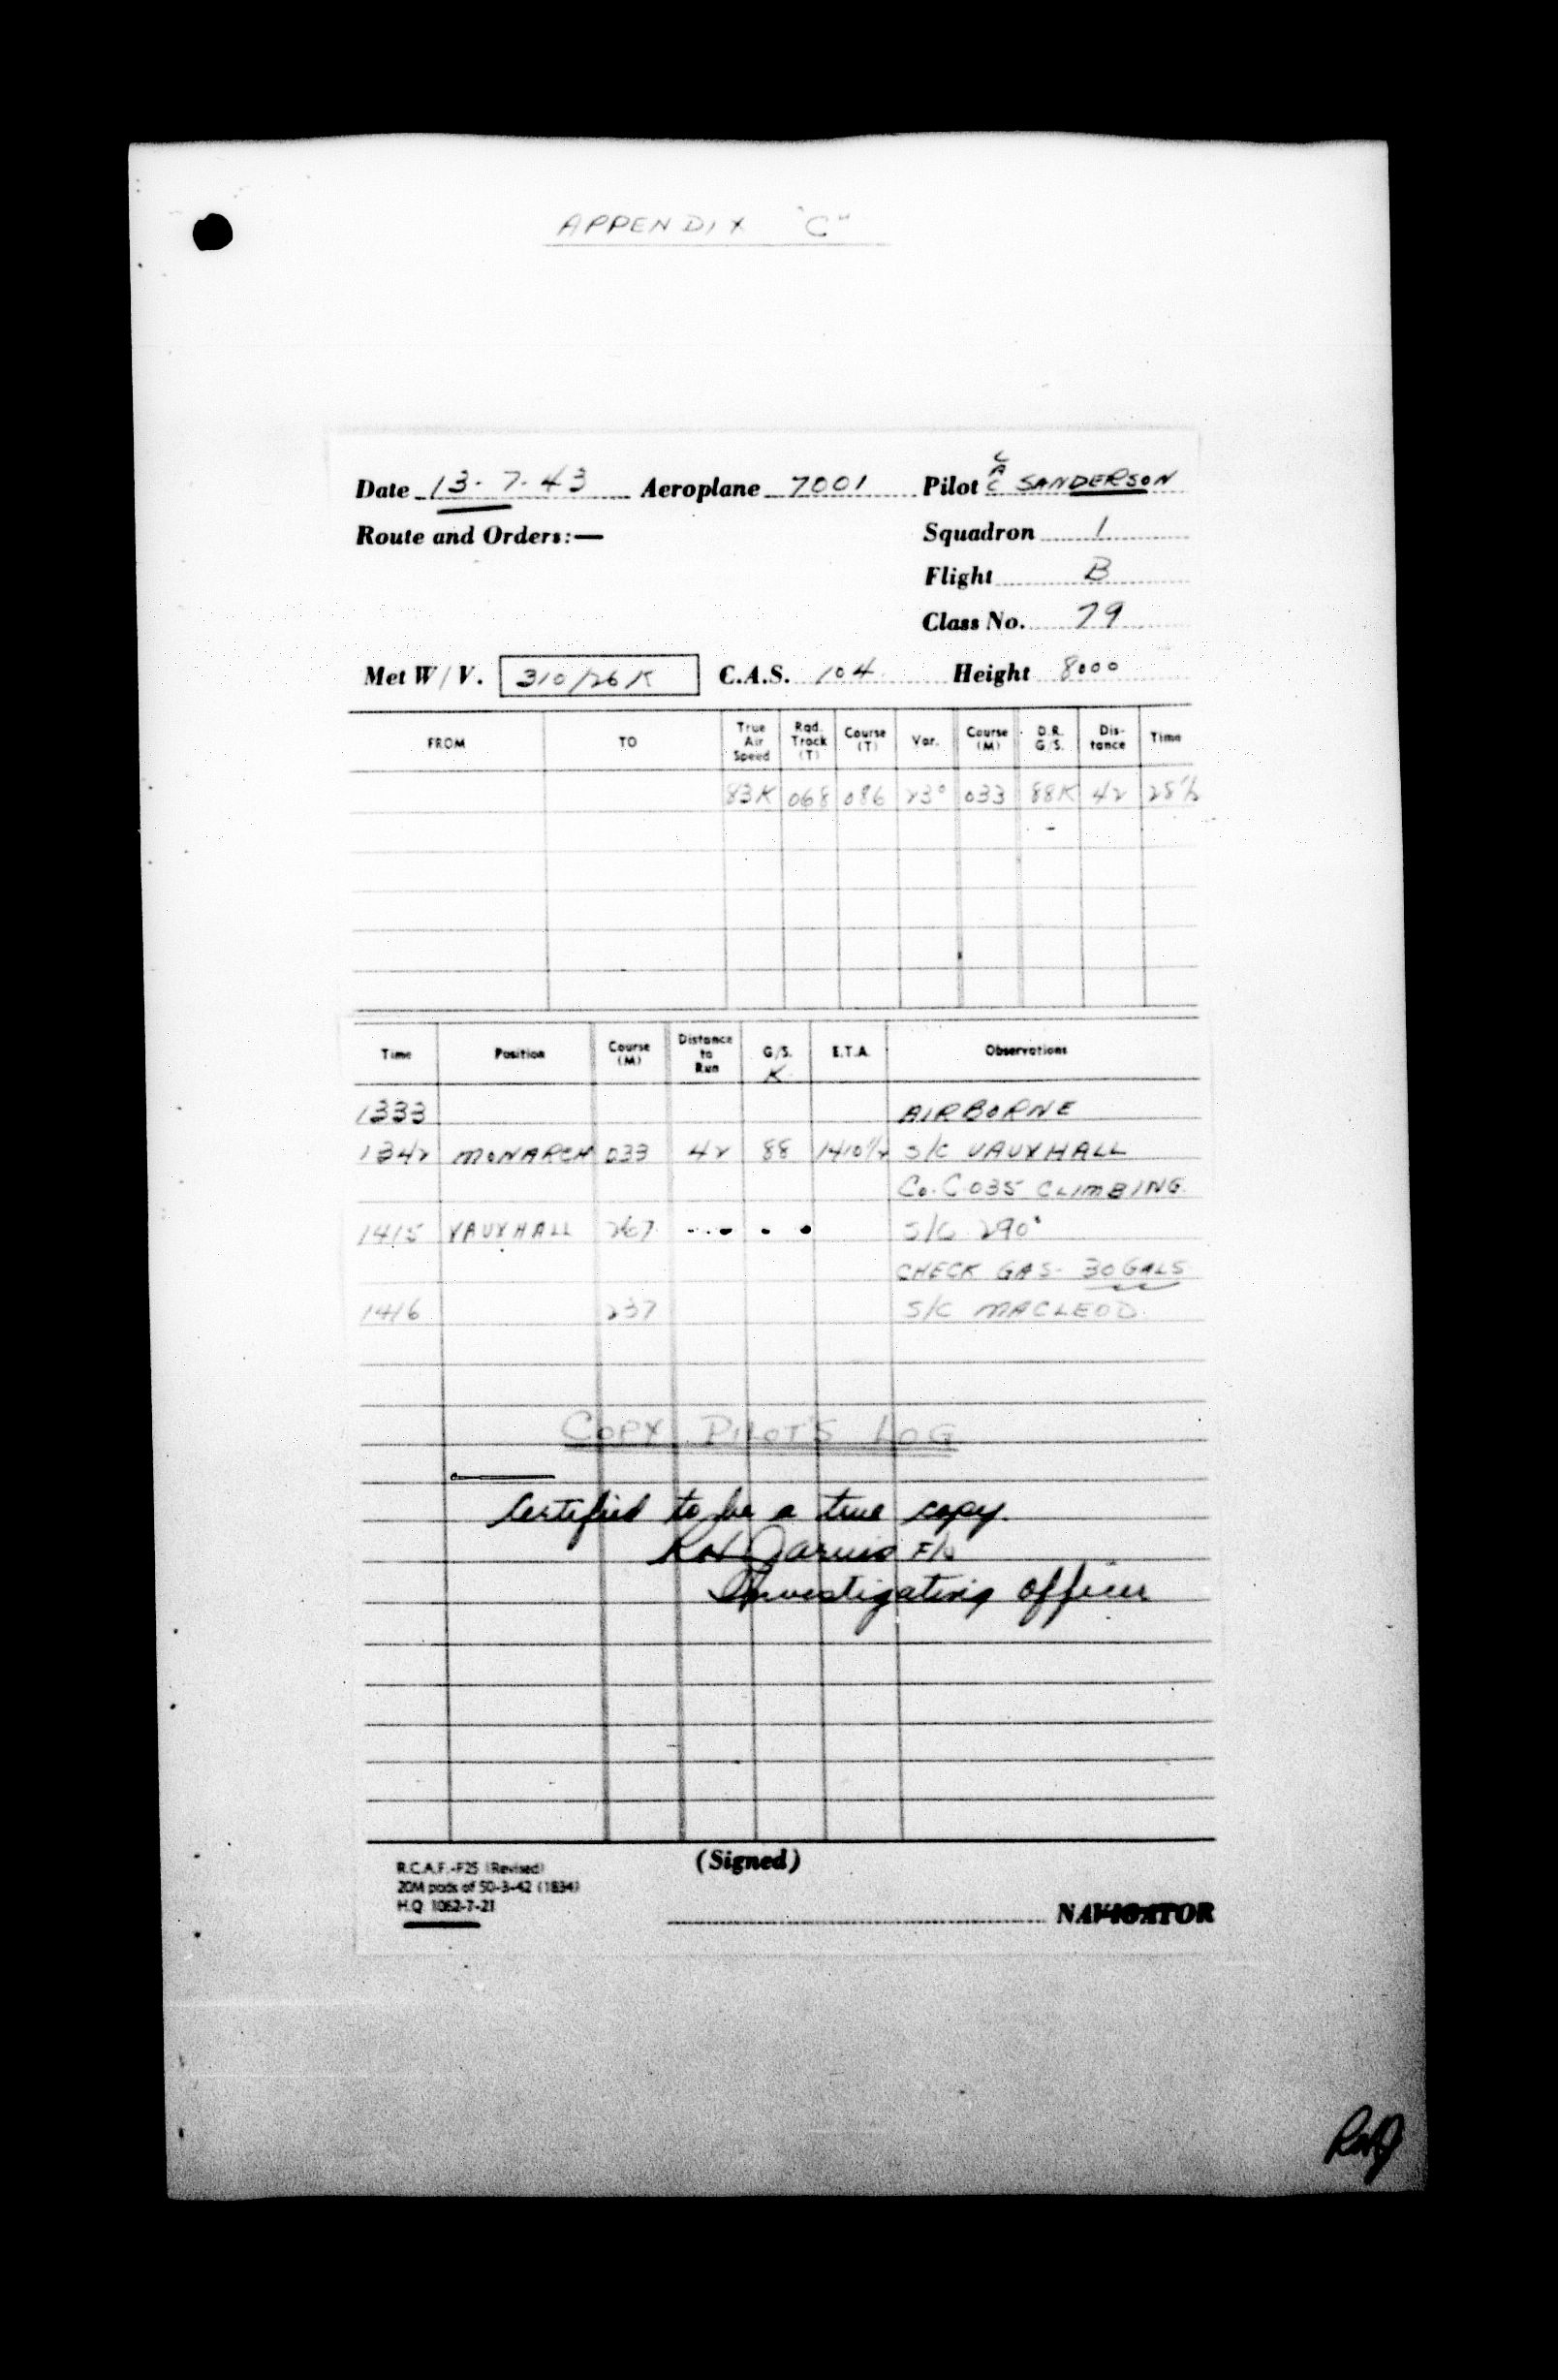 APPENDIX "C"
Date 13-7-43 Aeroplane 7001 Pilot LAC SANDERSON
Route and Orders:— Squadron 1
Flight B
Class No. 79
Met W/V. 310/26K C.A.S. 104 Height 8000
FROM TO True Air Speed Rqd. Track (T) Course (T) Var. Course (M) D.R. G/S. Dis-tance Time
83K 068 086 23° 033 88K 42 28½
Time Position Course (M) Distance to Run G/S. K E.T.A. Observations
1333 AIRBORNE
1342 MONARCH 033 42 88 1410½ S/C VAUXHALL
Co. C 035 CLIMBING
1415 VAUXHALL 267 S/C 290°
CHECK GAS - 30 GALS
1416 237 S/C MACLEOD.
COPY PILOT'S LOG
Certified to be a true copy.
RW Jarvis F/O
Investigating Officer
(Signed)
R.C.A.F.-F25 (Revised)
20M pads of 50-3-42 (1834)
H.Q. 1062-7-21
NAVIGATOR
RWJ